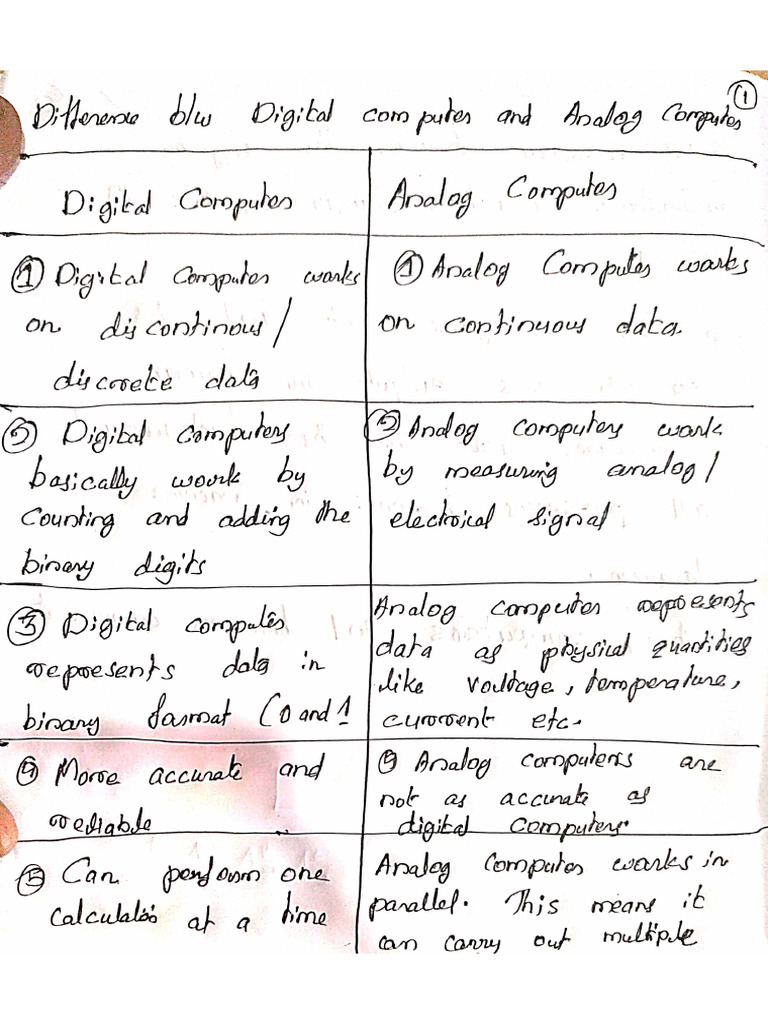 1
Difference b/w Digital computer and Analog Computer
Digital Computer
Analog Computer
1 Digital Computer works
on discontinous /
discrete data
1 Analog Computer works
on continuous data.
2 Digital Computers
basically work by
Counting and adding the
binary digits
2 Analog computers work
by measuring analog/
electrical signal
3 Digital computer
represents data in
binary format (0 and 1
Analog computer represents
data as physical quantities
like voltage, temperature,
current etc.
4 More accurate and
reliable
4 Analog computers are
not as accurate as
digital Computers.
5 Can perform one
at a time
Analog Computer works in
parallel. This means it
can carry out multiple